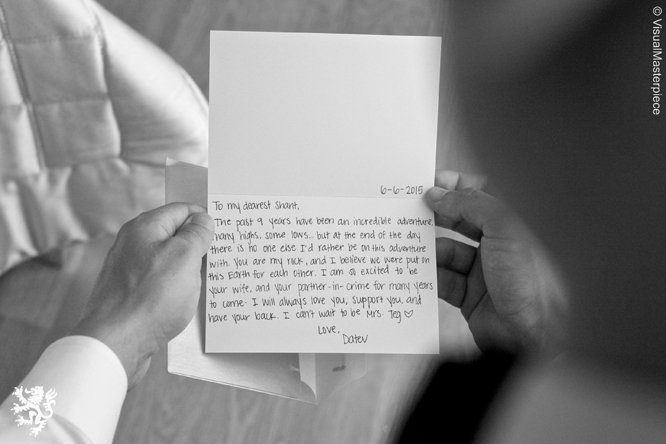 © VisualMasterpiece
6-6-2015
To my dearest Shant,
The past 9 years have been an incredible adventure.
Many highs, some lows... but at the end of the day
there is no one else I'd rather be on this adventure
with. You are my rock, and I believe we were put on
this Earth for each other. I am so excited to be
your wife, and your partner-in-crime for many years
to come. I will always love you, support you, and
have your back. I can't wait to be Mrs. Teg ♡
Love,
Datev